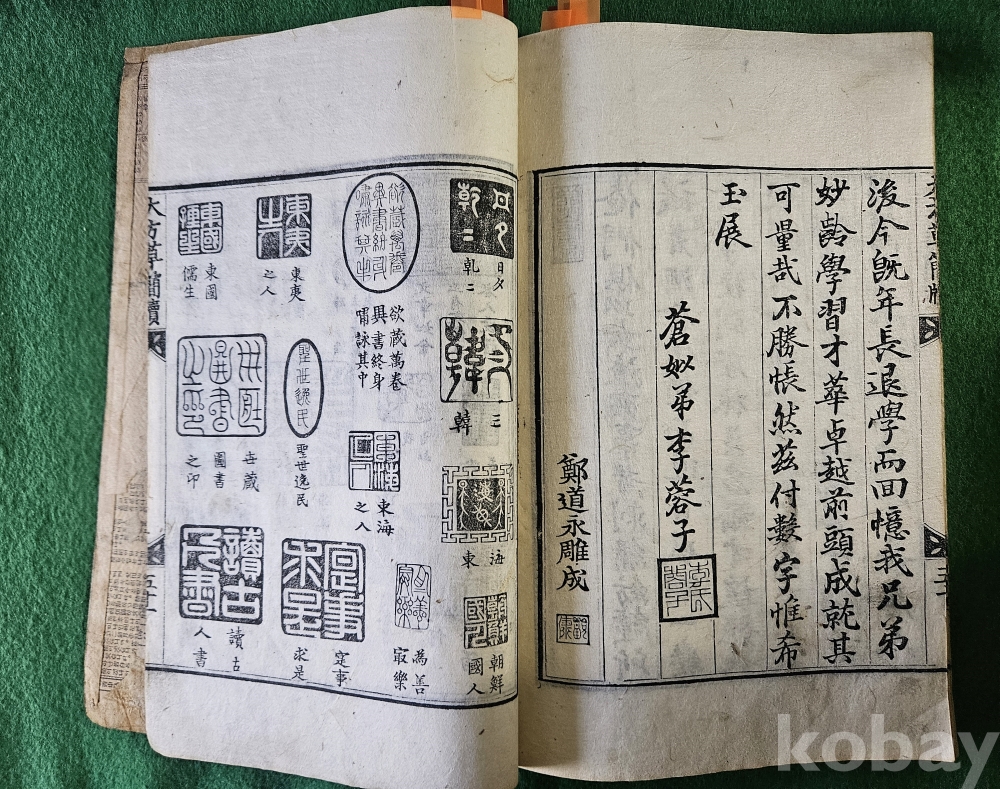 後今旣年長退學而回憶我兄弟
妙齡學習才華卓越前頭成就其
可量哉不勝悵然玆付數字惟希
玉展
蒼姒弟李蓉子
鄭道永雕成
日夕
乾二
三
韓
海
東
朝鮮
國人
欲藏萬卷
異書終身
嘯詠其中
東海
之人
為善
㝡樂
東夷
之人
聖世逸民
寔事
求是
東國
儒生
世藏
圖書
之印
讀古
人書
大方草簡牘
五十一
kobay